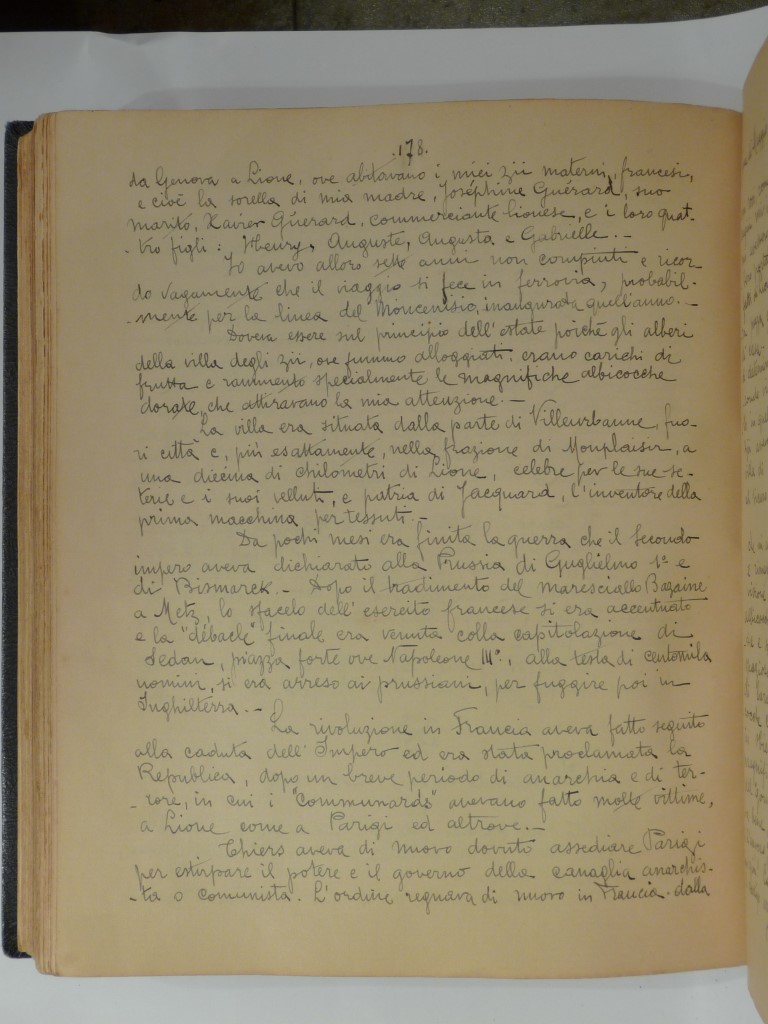 .178.
da Genova a Lione, ove abitavano i miei zii materni, francesi,
e cioè la sorella di mia madre, Joséphine Guérard, suo
marito, Xavier Guérard, commerciante lionese, e i loro quat-
-tro figli: Henry, Auguste, Augusta e Gabrielle.-
Io avevo allora sette anni non compiuti e ricor
do vagamente che il viaggio si fece in ferrovia, probabil-
-mente per la linea del Moncenisio, inaugurata quell'anno.-
Doveva essere sul principio dell'estate poichè gli alberi
della villa degli zii, ove fummo alloggiati, erano carichi di
frutta e rammento specialmente le magnifiche albicocche
dorate, che attiravano la mia attenzione.-
La villa era situata dalla parte di Villeurbanne, fuo-
ri città e, più esattamente, nella frazione di Monplaisir, a
una diecina di chilometri di Lione, celebre per le sue se-
terie e i suoi velluti, e patria di Jacquard, l'inventore della
prima macchina per tessuti.-
Da pochi mesi era finita la guerra che il Secondo
impero aveva dichiarato alla Prussia di Guglielmo 1º e
di Bismarck.- Dopo il tradimento del maresciallo Bazaine
a Metz, lo sfacelo dell'esercito francese si era accentuato
e la "débacle" finale era venuta colla capitolazione di
Sedan, piazza forte ove Napoleone IIIº, alla testa di centomila
uomini, si era arreso ai prussiani, per fuggire poi in
Inghilterra.-
La rivoluzione in Francia aveva fatto seguito
alla caduta dell'Impero ed era stata proclamata la
Repubblica, dopo un breve periodo di anarchia e di ter-
-rore, in cui i "communards" avevano fatto molte vittime,
a Lione come a Parigi ed altrove.-
Thiers aveva di nuovo dovuto assediare Parigi
per estirpare il potere e il governo della canaglia anarchis-
-ta o comunista. L'ordine regnava di nuovo in Francia dalla